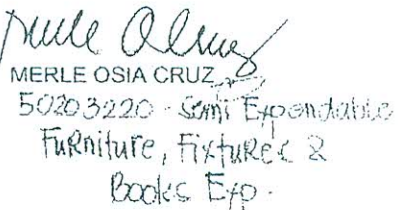 MERLE OSIA CRUZ
50203220 - Semi Expendable
Furniture, Fixtures &
Books Exp.